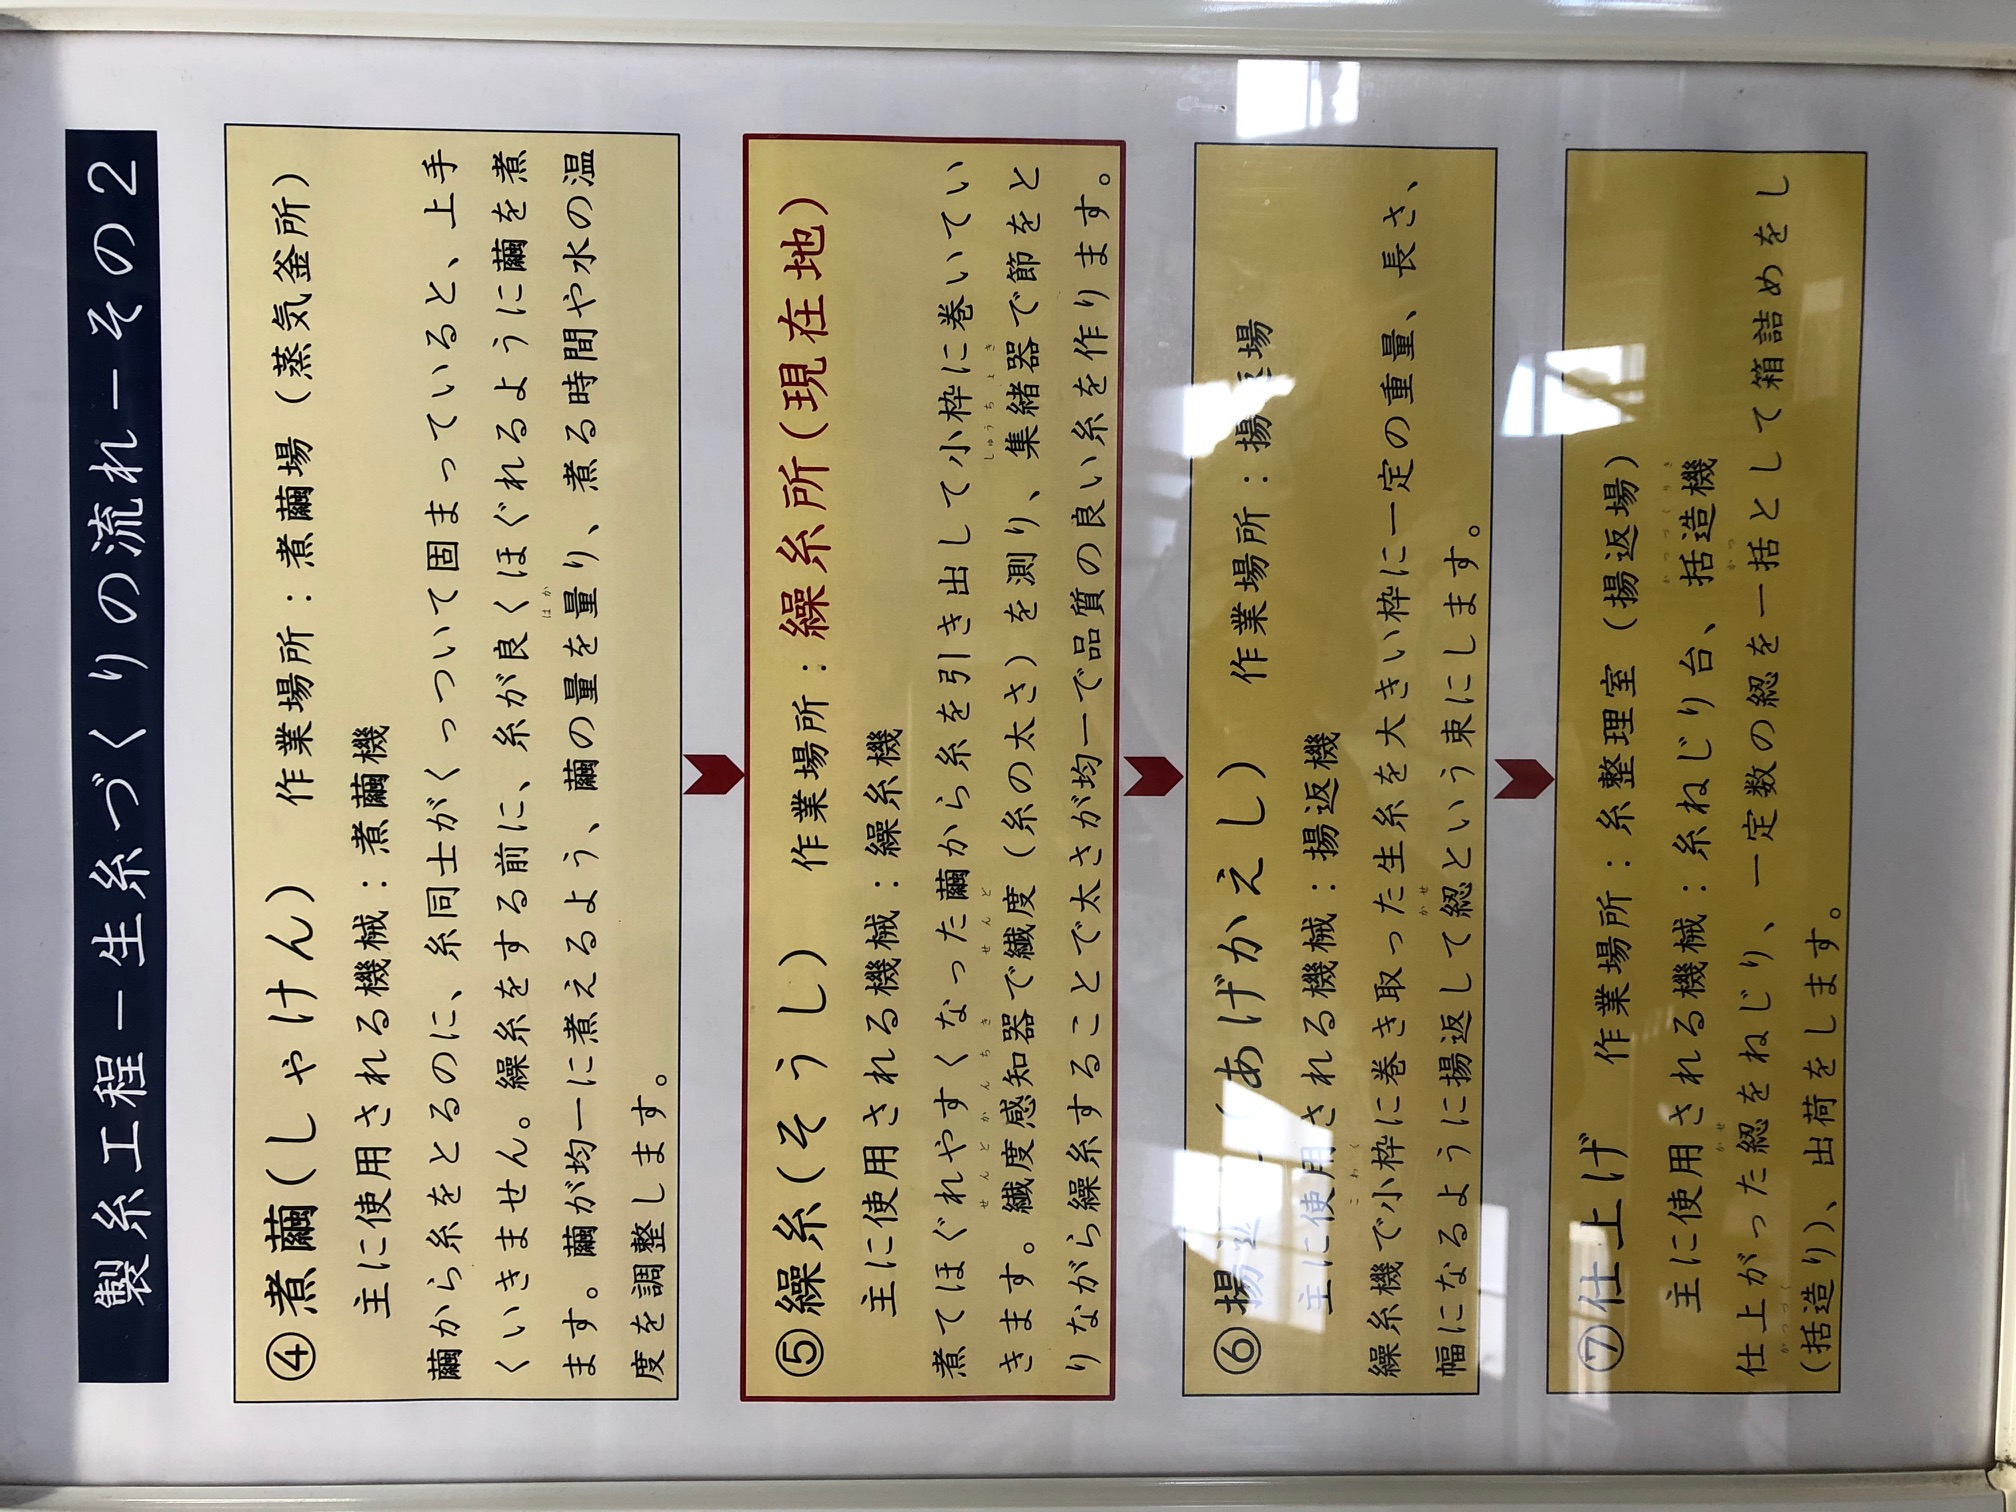 製糸工程－生糸づくりの流れ－その２
④煮繭(しゃけん) 作業場所：煮繭場（蒸気釜所）
主に使用される機械：煮繭機
繭から糸をとるのに、糸同士がくっついて固まっていると、上手
くいきません。繰糸をする前に、糸が良くほぐれるように繭を煮
ます。繭が均一に煮えるよう、繭の量を量り、煮る時間や水の温
度を調整します。
⑤繰糸(そうし) 作業場所：繰糸所(現在地)
主に使用される機械：繰糸機
煮てほぐれやすくなった繭から糸を引き出して小枠に巻いてい
きます。繊度感知器で繊度（糸の太さ）を測り、集緒器で節をと
りながら繰糸することで太さが均一で品質の良い糸を作ります。
⑥揚返（あげかえし） 作業場所：揚返場
主に使用される機械：揚返機
繰糸機で小枠に巻き取った生糸を大きい枠に一定の重量、長さ、
幅になるように揚返して綛という束にします。
⑦仕上げ 作業場所：糸整理室（揚返場）
主に使用される機械：糸ねじり台、括造機
仕上がった綛をねじり、一定数の綛を一括として箱詰めをし
(括造り)、出荷をします。